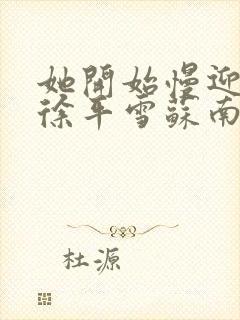 她開始慢迎
徐年雪蘇南
杜源